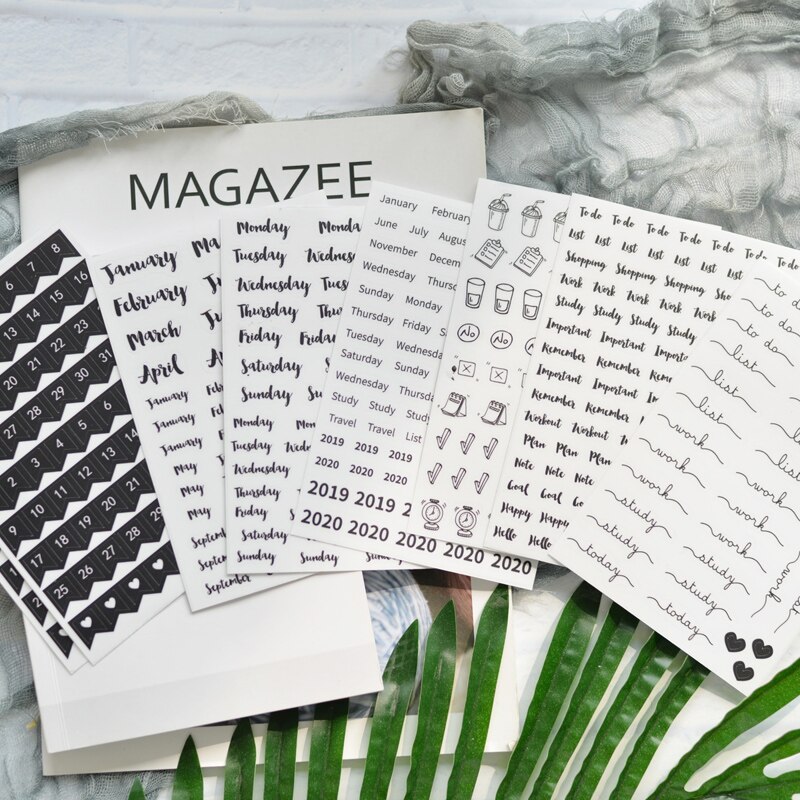 MAGAZEE
6 7 8
13 14 15 16
20 21 22 23
27 28 29 30 31
2 3 4 5 6
9 10 11 12 13 14
17 18 19 20 21
25 26 27 28 29
January
February
March
April
January
January
January
May
May
May
September
September
September
Monday
Tuesday
Wednesday
Thursday
Friday
Saturday
Sunday
Monday
Tuesday
Wednesday
Thursday
Friday
Saturday
Sunday Sunday
January February
June July August
November
Wednesday
Sunday Monday
Thursday Friday
Tuesday
Saturday Sunday
Wednesday
Study Study
Travel Travel List
2019 2019 2019
2020 2020 2020
2019 2019
2020 2020 2020 2020 2020
No No
To do To do To do To do To do To do To do
List List List List List List
Shopping Shopping
Work Work Work Work Work
Study Study Study Study
Important Important
Remember Remember
Important Important
Remember Remember
Workout Workout
Plan Plan Plan
Note Note Note
Goal Goal
Happy Happy
Hello Hello
to do
to do
list
list
list
list
work
work
work
work
work
study
study
study
study
today
today